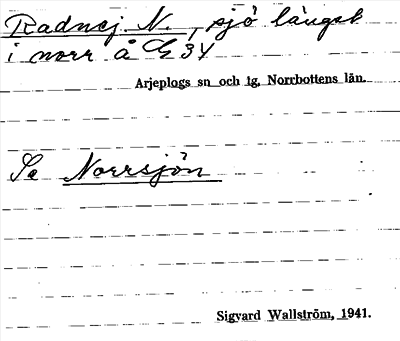 Radnej N., sjö längst
i norr å G 34
Arjeplogs sn och tg, Norrbottens län.
Se Norrsjön
Sigvard Wallström, 1941.